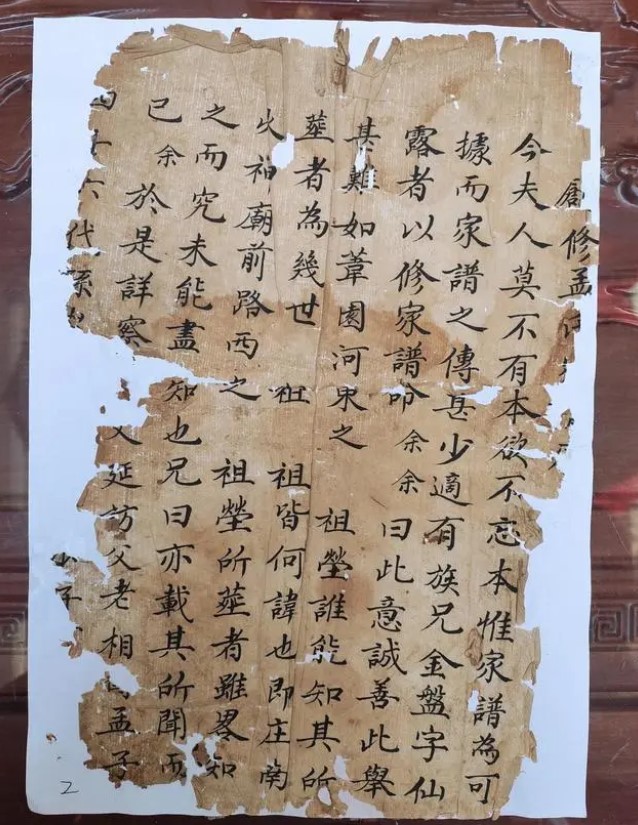 修孟
今夫人莫不有本欲不忘本惟家譜為可
據而家譜之傳甚少適有族兄金盤字仙
露者以修家譜命余余曰此意誠善此舉
其難如葦園河東之 祖塋誰能知其所
塟者為幾世 祖 祖皆何諱也即庄南
火神廟前路西之 祖塋所塟者雖畧知
之而究未能盡知也兄曰亦載其所聞而
已余於是詳察 延訪父老相 孟子
四十六代孫
2